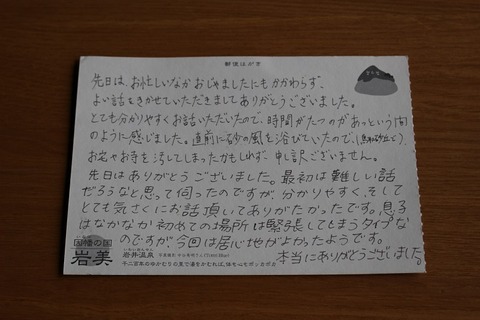 郵便はがき
先日は、お忙しいなかおじゃましたにもかかわらず、
よい話をきかせていただきましてありがとうございました。
とても分かりやすくお話いただいたので、時間がたつのがあっという間
のように感じました。直前に砂の風を浴びていたので、(鳥取砂丘と)
お宅やお寺を汚してしまったかもしれず、申し訳ございません。
先日はありがとうございました。最初は難しい話
だろうなと思って伺ったのですが、分かりやすく、そして
とても気さくにお話頂いてありがたかったです。息子
はなかなか初めての場所は緊張してしまうタイプな
のですが、今回は居心地がよかったようです。
本当にありがとうございました。
因幡の国
岩美
岩井温泉
千二百年のゆかむりの里で湯をかむれば、体も心もポッカポカ